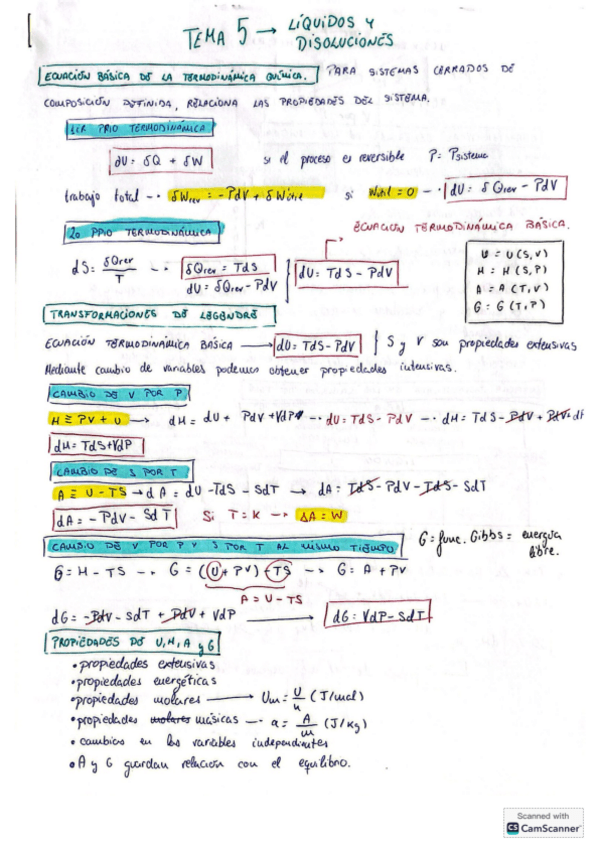 TEMA 5 → LÍQUIDOS Y
DISOLUCIONES
ECUACIÓN BÁSICA DE LA TERMODINÁMICA QUÍMICA. PARA SISTEMAS CERRADOS DE
COMPOSICIÓN DEFINIDA, RELACIONA LAS PROPIEDADES DEL SISTEMA.
1ER PPIO TERMODINÁMICA
dU = δQ + δW si el proceso es reversible P = Psistema
trabajo total --• δWrev = -PdV + δWútil si Wútil = 0 --• dU = δQrev - PdV
2o PPIO TERMODINÁMICA
ECUACIÓN TERMODINÁMICA BÁSICA.
dS = δQrev / T --• δQrev = TdS
dU = δQrev - PdV } dU = TdS - PdV
U = U(S,V)
H = H(S,P)
A = A(T,V)
G = G(T,P)
TRANSFORMACIONES DE LEGENDRE
ECUACIÓN TERMODINÁMICA BÁSICA → dU = TdS - PdV } S y V son propiedades extensivas
Mediante cambio de variables podemos obtener propiedades intensivas.
CAMBIO DE V POR P
H ≡ PV + U → dH = dU + PdV + VdP --• dU = TdS - PdV --• dH = TdS - PdV + PdV +
dH = TdS + VdP
CAMBIO DE S POR T
A ≡ U - TS → dA = dU - TdS - SdT → dA = TdS - PdV - TdS - SdT
dA = - PdV - SdT Si T = K --• ΔA = W
CAMBIO DE V POR P Y S POR T AL MISMO TIEMPO
G = func. Gibbs = energía
libre.
G = H - TS --• G = (U + PV) - TS --• G = A + PV
A = U - TS
dG = -PdV - SdT + PdV + VdP → dG = VdP - SdT
PROPIEDADES DE U, H, A y G
• propiedades extensivas
• propiedades energéticas
• propiedades molares → Um = U/n (J/mol)
• propiedades molares másicas --• a = A/m (J/Kg)
• cambios en las variables independientes
• A y G guardan relación con el equilibrio.
Scanned with
CS CamScanner